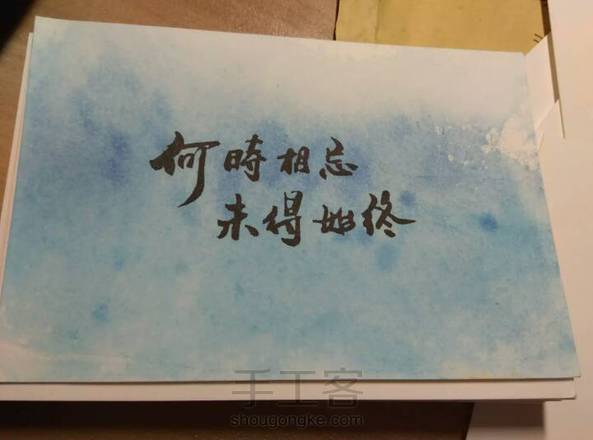 何時相忘
未得始终
手工客
shougongke.com